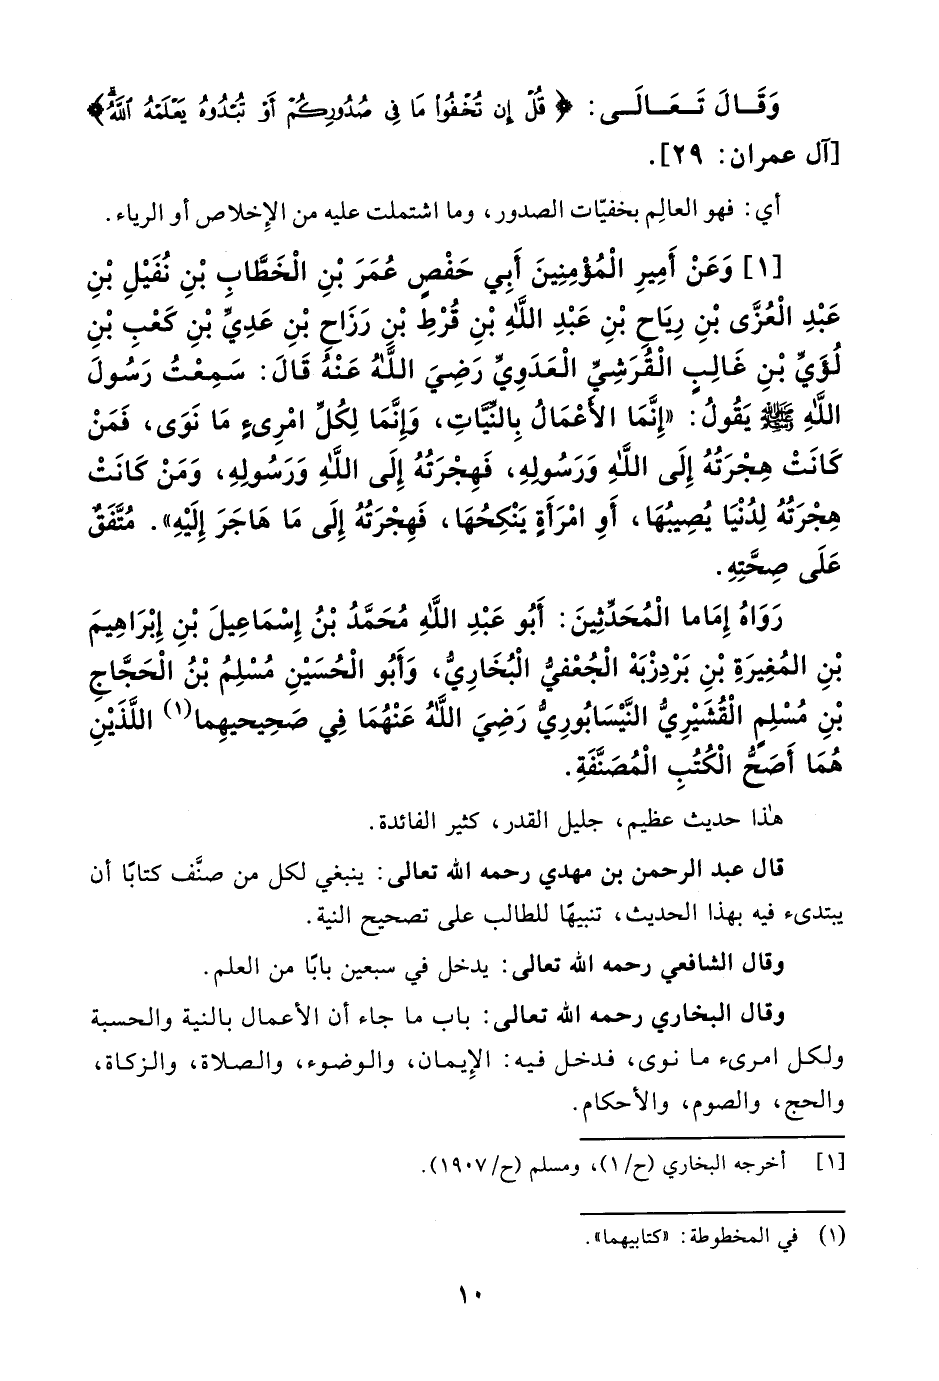 وَقَــالَ تَـعَـالَــى: ﴿ قُلْ إِن تُخْفُوا۟ مَا فِى صُدُورِكُمْ أَوْ تُبْدُوهُ يَعْلَمْهُ ٱللَّهُ ﴾
[آل عمران: ٢٩].
أي: فهو العالِم بخفيّات الصدور، وما اشتملت عليه من الإِخلاص أو الرياء.
[١] وَعَنْ أَمِيرِ الْمُؤْمِنِينَ أَبِي حَفْصٍ عُمَرَ بْنِ الْخَطَّابِ بْنِ نُفَيْلِ بْنِ
عَبْدِ الْعُزَّى بْنِ رِيَاحِ بْنِ عَبْدِ اللَّهِ بْنِ قُرْطِ بْنِ رَزَاحِ بْنِ عَدِيِّ بْنِ كَعْبِ بْنِ
لُؤَيِّ بْنِ غَالِبٍ الْقُرَشِيِّ الْعَدَوِيِّ رَضِيَ اللَّهُ عَنْهُ قَالَ: سَمِعْتُ رَسُولَ
اللَّهِ ﷺ يَقُولُ: «إِنَّمَا الأَعْمَالُ بِالنِّيَّاتِ، وَإِنَّمَا لِكُلِّ امْرِىءٍ مَا نَوَى، فَمَنْ
كَانَتْ هِجْرَتُهُ إِلَى اللَّهِ وَرَسُولِهِ، فَهِجْرَتُهُ إِلَى اللَّهِ وَرَسُولِهِ، وَمَنْ كَانَتْ
هِجْرَتُهُ لِدُنْيَا يُصِيبُهَا، أَوِ امْرَأَةٍ يَنْكِحُهَا، فَهِجْرَتُهُ إِلَى مَا هَاجَرَ إِلَيْهِ». مُتَّفَقٌ
عَلَى صِحَّتِهِ.
رَوَاهُ إِمَاما الْمُحَدِّثِينَ: أَبُو عَبْدِ اللَّهِ مُحَمَّدُ بْنُ إِسْمَاعِيلَ بْنِ إِبْرَاهِيمَ
بْنِ المُغِيرَةِ بْنِ بَرْدِزْبَهْ الْجُعْفيُّ الْبُخَارِيُّ، وَأَبُو الْحُسَيْنِ مُسْلِمُ بْنُ الْحَجَّاجِ
بْنِ مُسْلِمٍ الْقُشَيْرِيُّ النَّيْسَابُورِيُّ رَضِيَ اللَّهُ عَنْهُمَا فِي صَحِيحيهِما(١) اللَّذَيْنِ
هُمَا أَصَحُّ الْكُتُبِ الْمُصَنَّفَةِ.
هٰذا حديث عظيم، جليل القدر، كثير الفائدة.
قال عبد الرحمن بن مهدي رحمه الله تعالى: ينبغي لكل من صنَّف كتابًا أن
يبتدىء فيه بهذا الحديث، تنبيهًا للطالب على تصحيح النية.
وقال الشافعي رحمه الله تعالى: يدخل في سبعين بابًا من العلم.
وقال البخاري رحمه الله تعالى: باب ما جاء أن الأعمال بالنية والحسبة
ولكل امرىء ما نوى، فدخل فيه: الإِيمان، والوضوء، والصلاة، والزكاة،
والحج، والصوم، والأحكام.
[١] أخرجه البخاري (ح/١)، ومسلم (ح/١٩٠٧).
(١) في المخطوطة: «كتابيهما».
١٠